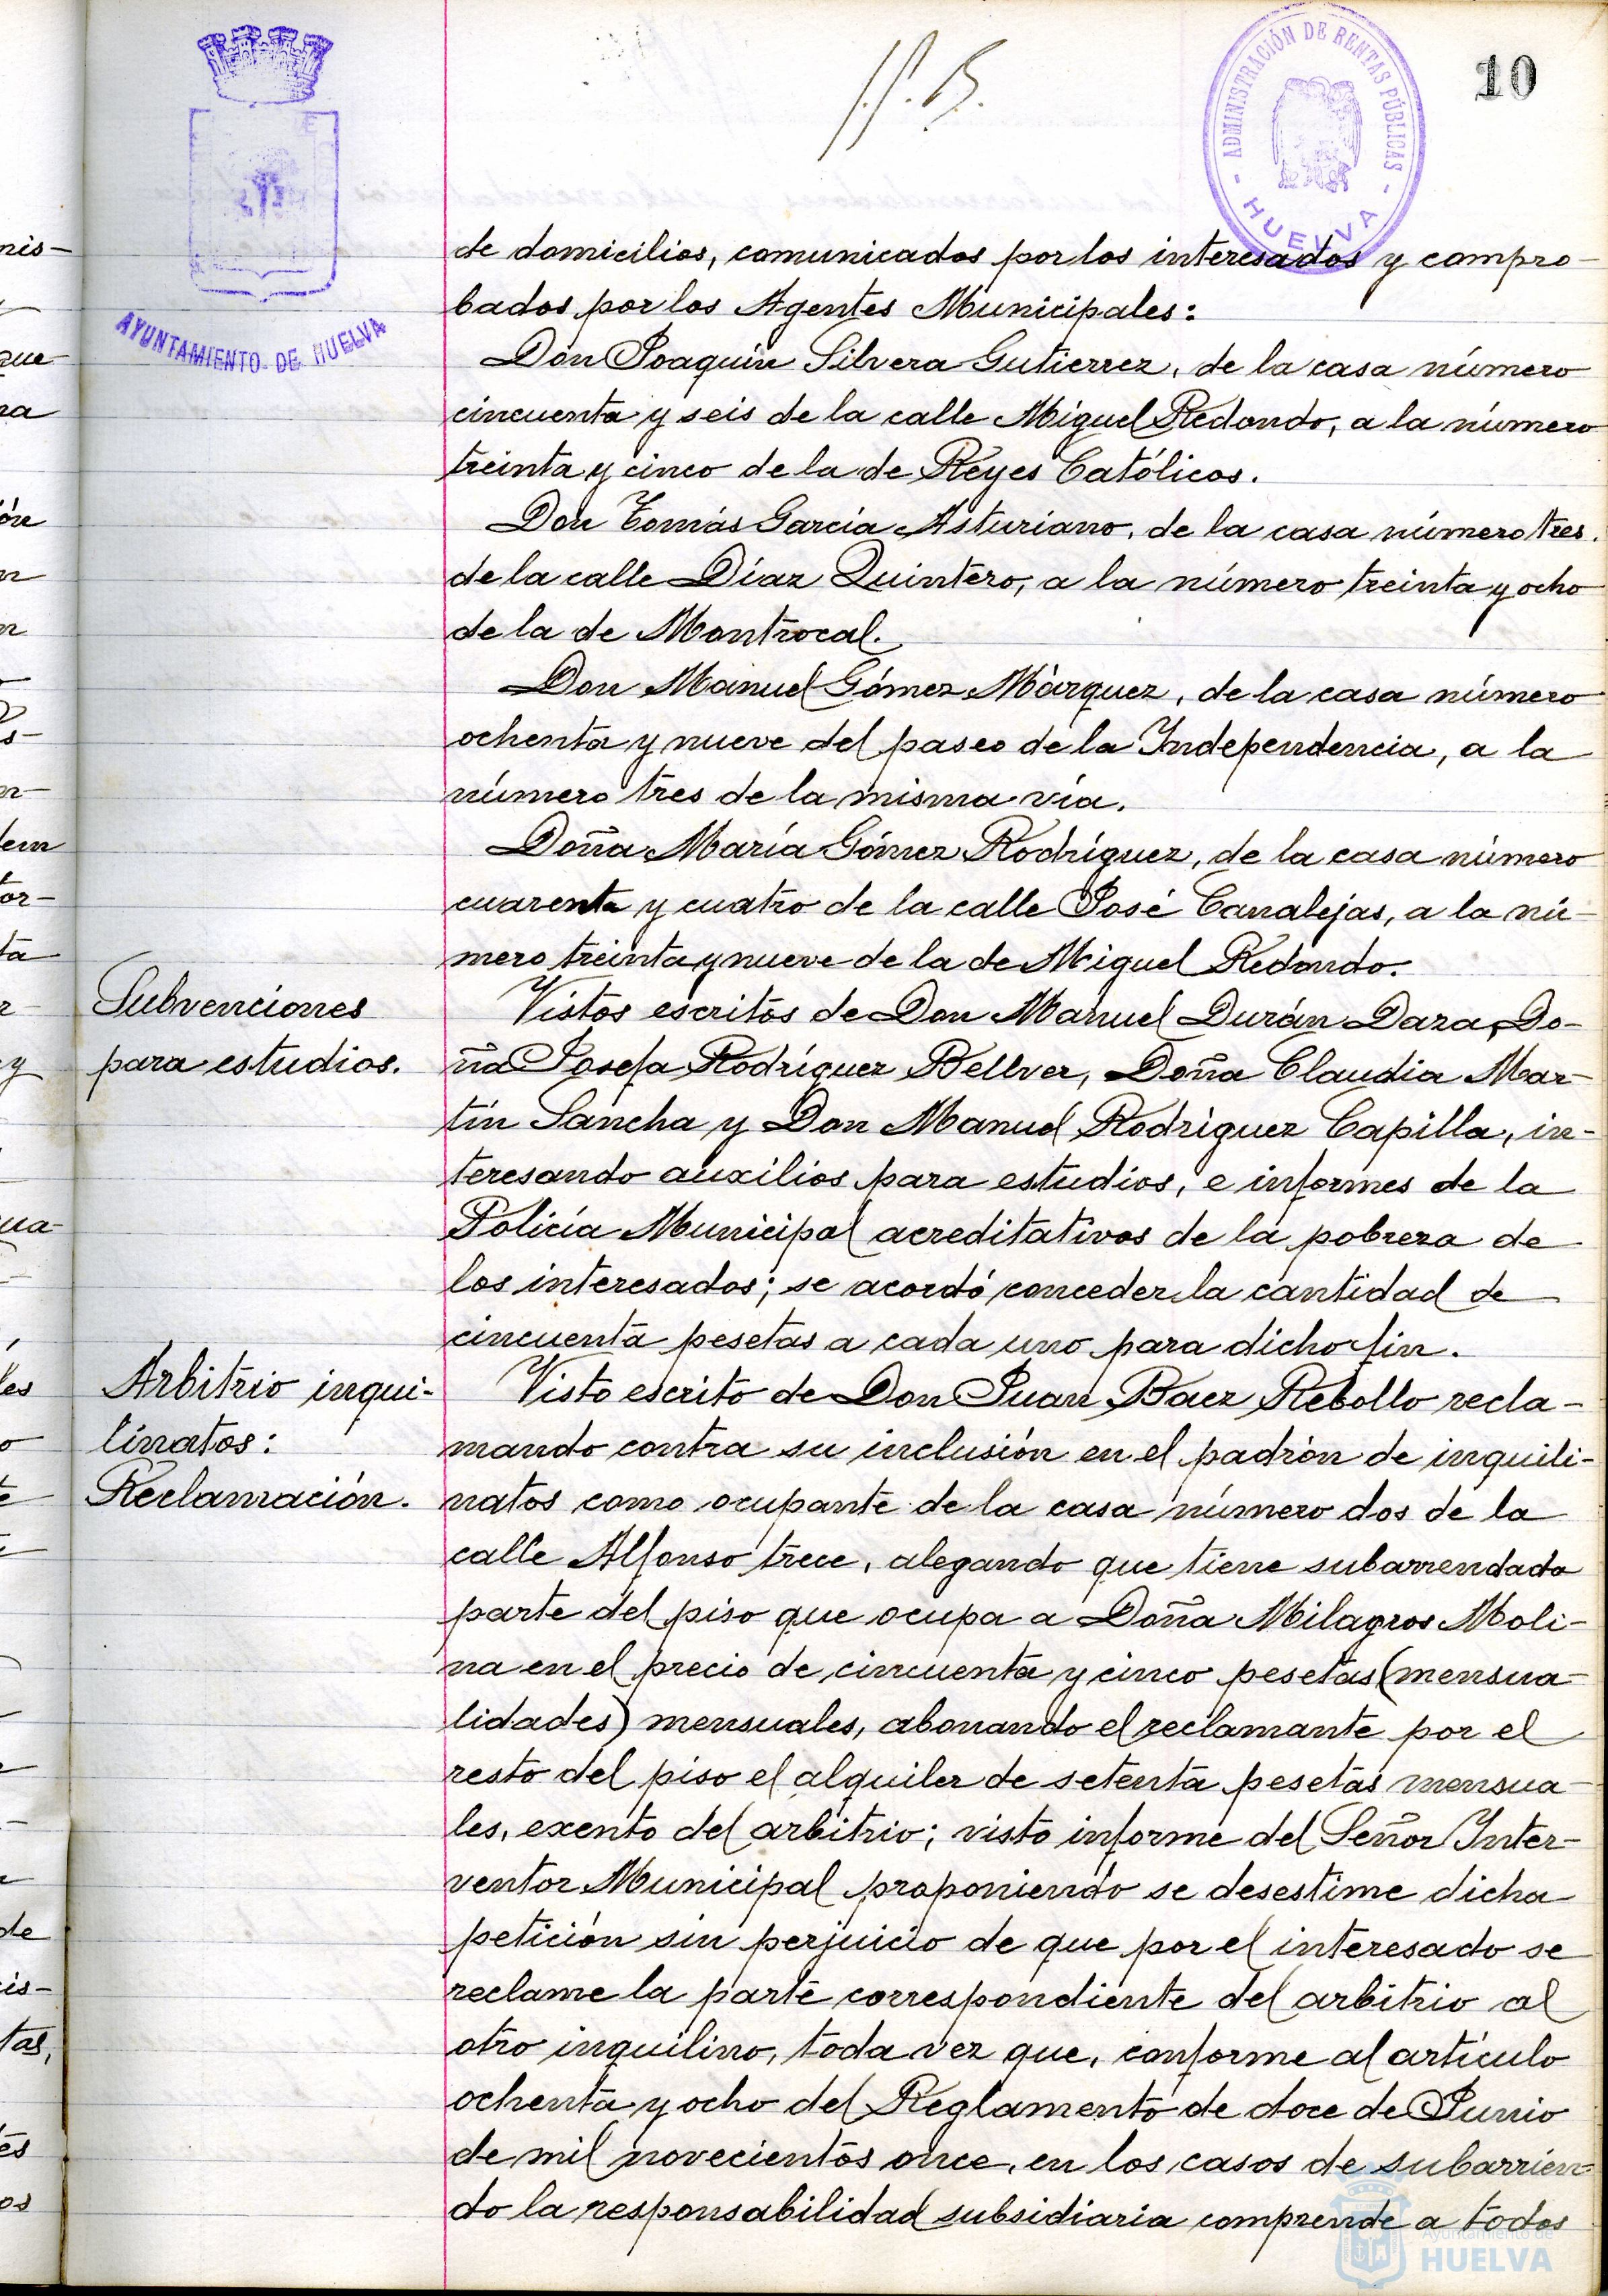 10
ADMINISTRACIÓN DE RENTAS PÚBLICAS
- HUELVA -
AYUNTAMIENTO DE HUELVA
de domicilios, comunicados por los interesados y compro-
bados por los Agentes Municipales:
Don Joaquín Silvera Gutierrez, de la casa número
cincuenta y seis de la calle Miguel Redondo, a la número
treinta y cinco de la de Reyes Católicos.
Don Tomás García Asturiano, de la casa número tres
de la calle Díaz Quintero, a la número treinta y ocho
de la de Montrocal.
Don Manuel Gómez Márquez, de la casa número
ochenta y nueve del paseo de la Independencia, a la
número tres de la misma vía.
Doña María Gómez Rodríguez, de la casa número
cuarenta y cuatro de la calle José Canalejas, a la nú-
mero treinta y nueve de la de Miguel Redondo.
Subvenciones
para estudios.
Vistos escritos de Don Manuel Durán Daza, Do-
ña Josefa Rodríguez Bellver, Doña Claudia Mar-
tín Sancha y Don Manuel Rodríguez Capilla, in-
teresando auxilios para estudios, e informes de la
Policía Municipal acreditativos de la pobreza de
los interesados; se acordó conceder la cantidad de
cincuenta pesetas a cada uno para dicho fin.
Arbitrio inqui-
linatos:
Reclamación.
Visto escrito de Don Juan Baez Rebollo recla-
mando contra su inclusión en el padrón de inquili-
natos como ocupante de la casa número dos de la
calle Alfonso trece, alegando que tiene subarrendada
parte del piso que ocupa a Doña Milagros Moli-
na en el precio de cincuenta y cinco pesetas (mensua-
lidades) mensuales, abonando el reclamante por el
resto del piso el alquiler de setenta pesetas mensua-
les, exento del arbitrio; visto informe del Señor Inter-
ventor Municipal proponiendo se desestime dicha
petición sin perjuicio de que por el interesado se
reclame la parte correspondiente del arbitrio al
otro inquilino, toda vez que, conforme al artículo
ochenta y ocho del Reglamento de doce de Junio
de mil novecientos once, en los casos de subarrien-
do la responsabilidad subsidiaria comprende a todos
Ayuntamiento de
HUELVA